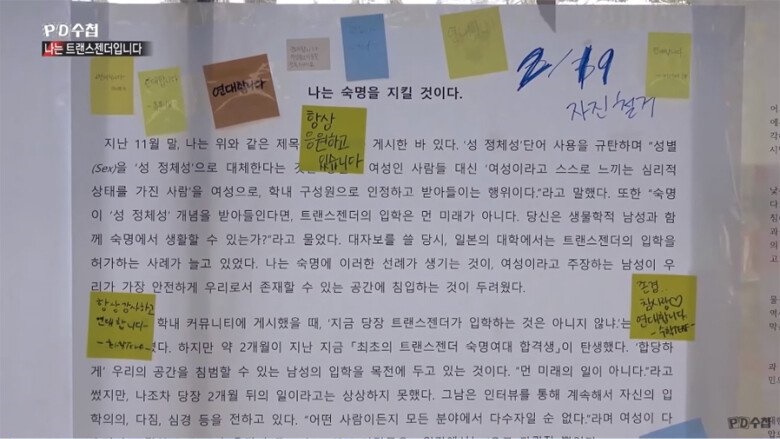 PD수첩
나는 트랜스젠더입니다
연대합니다
연대합니다
연대합니다
2/19
자진철거
나는 숙명을 지킬 것이다.
항상
응원하고
있습니다
지난 11월 말, 나는 위와 같은 제목 게시한 바 있다. '성 정체성'단어 사용을 규탄하며 "성별
(Sex)을 '성 정체성'으로 대체한다는 것은 여성인 사람들 대신 '여성이라고 스스로 느끼는 심리적
상태를 가진 사람'을 여성으로, 학내 구성원으로 인정하고 받아들이는 행위이다."라고 말했다. 또한 "숙명
이 '성 정체성' 개념을 받아들인다면, 트랜스젠더의 입학은 먼 미래가 아니다. 당신은 생물학적 남성과 함
께 숙명에서 생활할 수 있는가?"라고 물었다. 대자보를 쓸 당시, 일본의 대학에서는 트랜스젠더의 입학을
허가하는 사례가 늘고 있었다. 나는 숙명에 이러한 선례가 생기는 것이, 여성이라고 주장하는 남성이 우
리가 가장 안전하게 우리로서 존재할 수 있는 공간에 침입하는 것이 두려웠다.
항상 감사하고
연대합니다
존경..
참사랑♡
연대합니다.
학내 커뮤니티에 게시했을 때, '지금 당장 트랜스젠더가 입학하는 것은 아니지 않냐.'는
였다. 하지만 약 2개월이 지난 지금 「최초의 트랜스젠더 숙명여대 합격생」이 탄생했다. '합당하
게' 우리의 공간을 침범할 수 있는 남성의 입학을 목전에 두고 있는 것이다. "먼 미래의 일이 아니다."라고
썼지만, 나조차 당장 2개월 뒤의 일이라고는 상상하지 못했다. 그남은 인터뷰를 통해 계속해서 자신의 입
학의의, 다짐, 심경 등을 전하고 있다. "어떤 사람이든지 모든 분야에서 다수자일 순 없다."라며 여성이 다
PD수첩